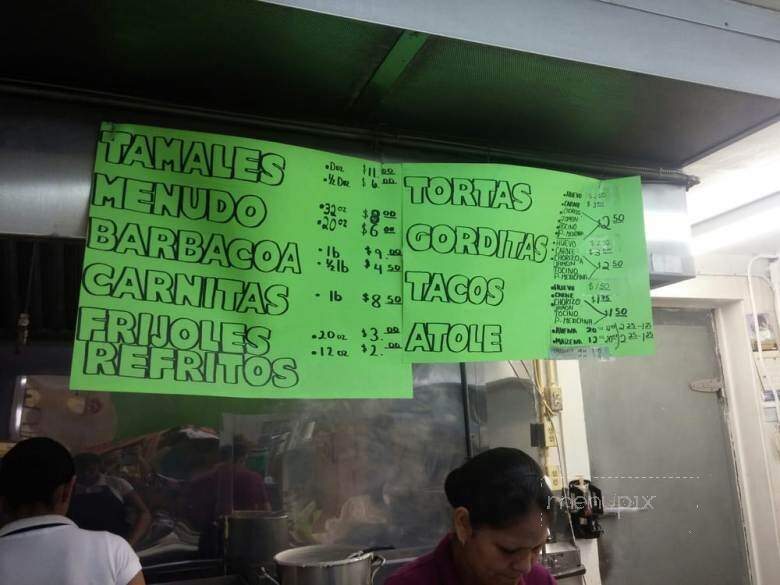 TAMALES •Doz $11.00
•½ Doz $6.00
MENUDO •32 oz $8.00
•20 oz $6.00
BARBACOA •lb $9.00
•½ lb $4.50
CARNITAS •lb $8.50
FRIJOLES •20 oz $3.00
REFRITOS •12 oz $2.00
TORTAS •HUEVO
•CARNE
•CHORIZO
JAMON $2.50
TOCINO
P. MEXICANA
GORDITAS •HUEVO
•CARNE
•CHORIZO
JAMON $2.50
TOCINO
P. MEXICANA
TACOS •HUEVO $1.50
•CARNE $1.75
•CHORIZO
JAMON $1.50
TOCINO
P. MEXICANA
ATOLE •AVENA 20 oz
•MAIZENA 12 oz
menupix